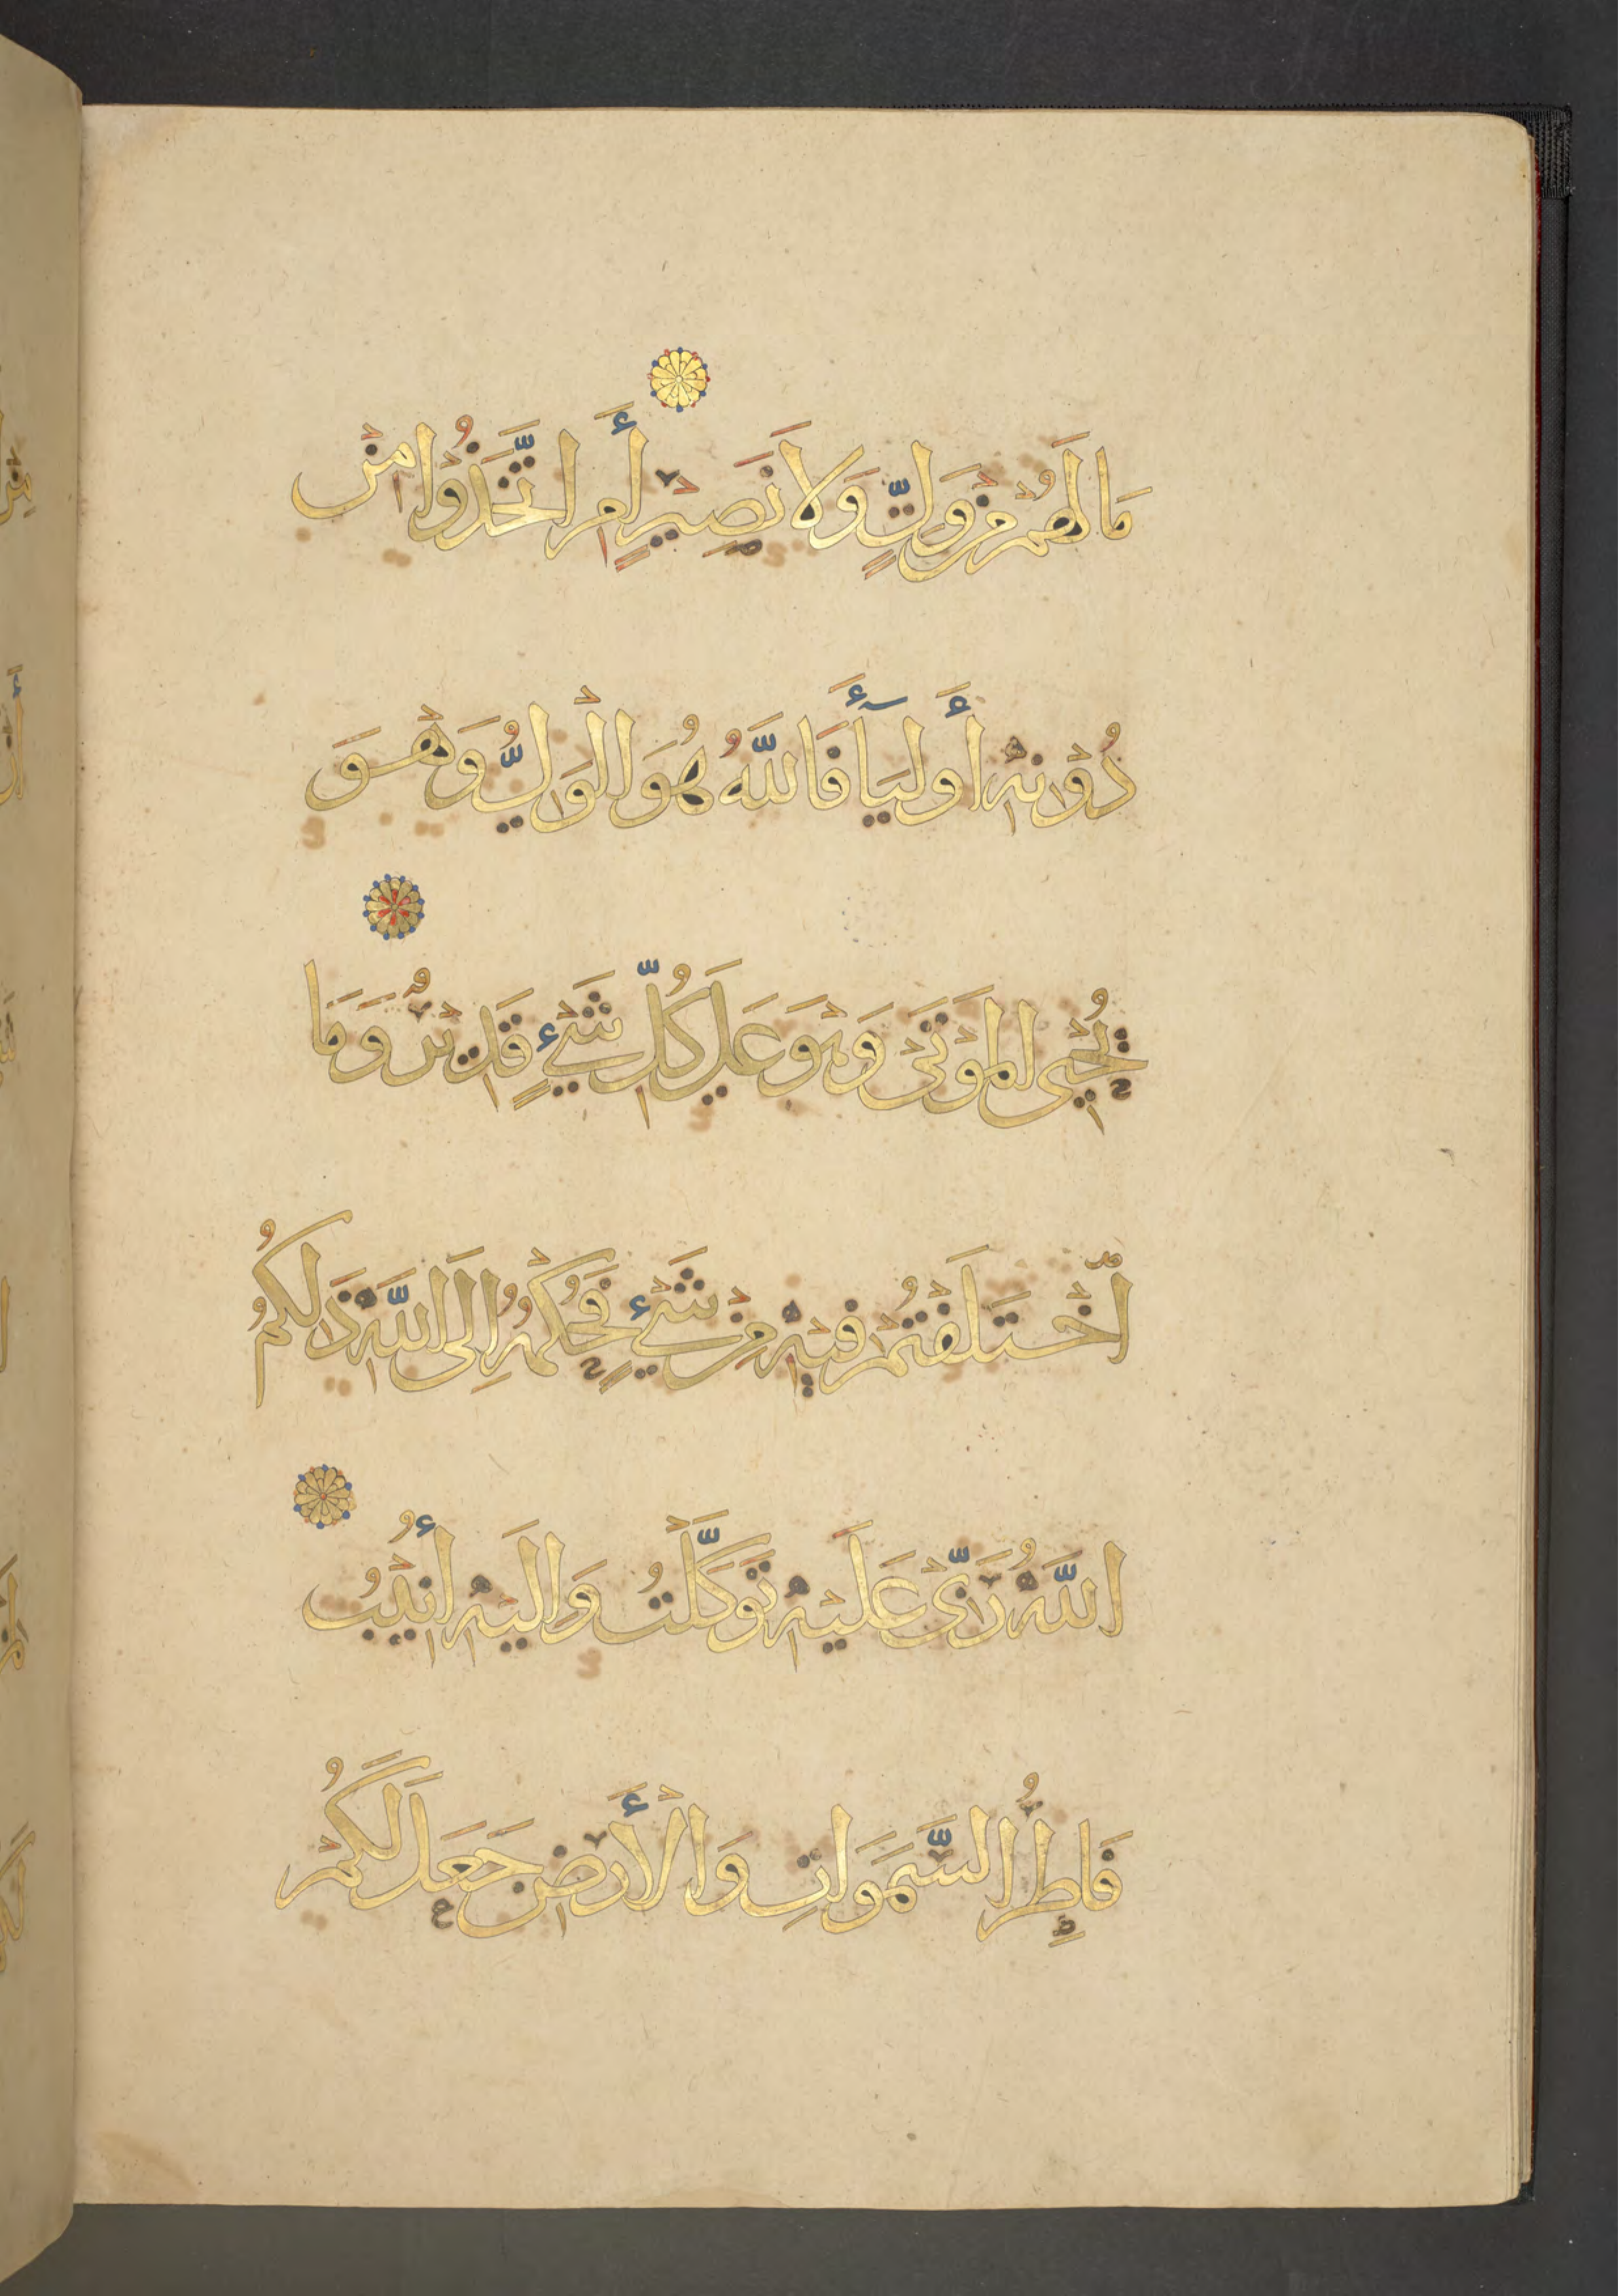 مَا لَهُمْ مِنْ وَلِيٍّ وَلَا نَصِيْرٍ أَمِ اتَّخَذُوْا مِنْ
دُوْنِهِ أَوْلِيَآءَ فَاللّٰهُ هُوَ الْوَلِيُّ وَهْوَ
يُحْيِ الْمَوْتَى وَهْوَ عَلَى كُلِّ شَيْءٍ قَدِيْرٌ وَمَا
اخْتَلَفْتُمْ فِيْهِ مِنْ شَيْءٍ فَحُكْمُهُ إِلَى اللّٰهِ ذَلِكُمُ
اللّٰهُ رَبِّيْ عَلَيْهِ تَوَكَّلْتُ وَإِلَيْهِ أُنِيْبُ
فَاطِرُ السَّمَوَاتِ وَالْأَرْضِ جَعَلَ لَكُمْ